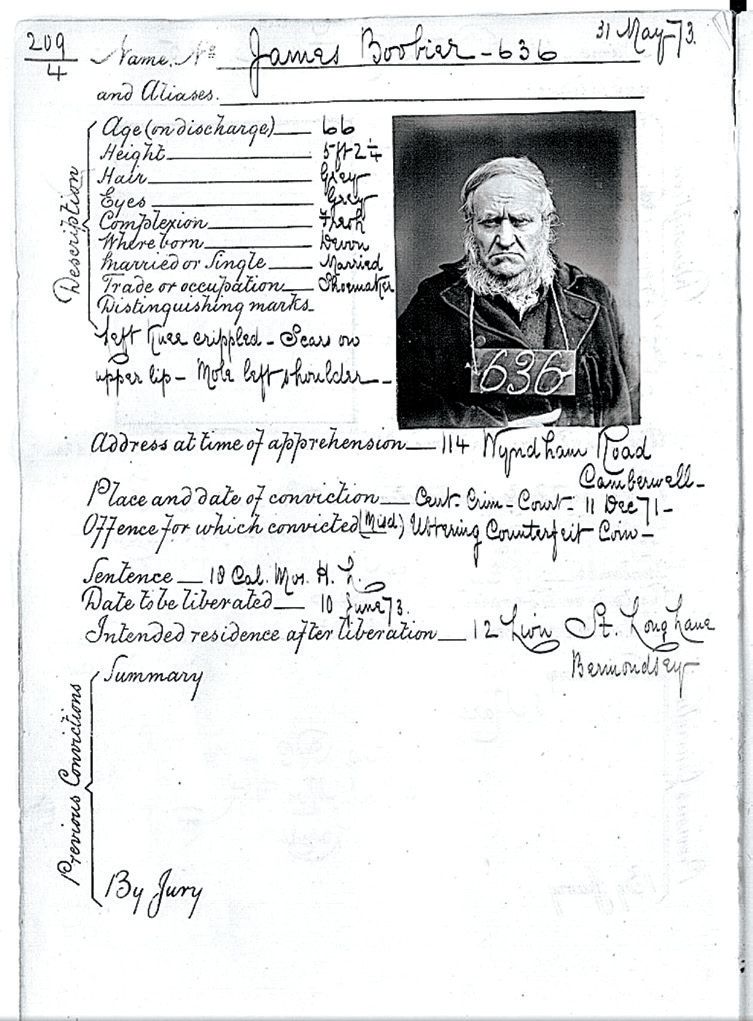 209
4
31 May 73.
Name. No James Boobier - 636
and Aliases.
Description
Age (on discharge) 66
Height 5ft 2 1/4
Hair Grey
Eyes Grey
Complexion Fresh
Where born Devon
Married or Single Married
Trade or occupation Shoemaker
Distinguishing marks
left Knee crippled - Scar on
upper lip - Mole left shoulder -
636
Address at time of apprehension 114 Wyndham Road
Camberwell -
Place and date of conviction Cent. Crim - Court - 11 Dec 71 -
Offence for which convicted (Misd.) Uttering Counterfeit Coin -
Sentence 18 Cal. Mos. H. L.
Date to be liberated 10 June 73.
Intended residence after liberation 12 Lion St. Long Lane
Bermondsey
Previous Convictions
Summary
By Jury